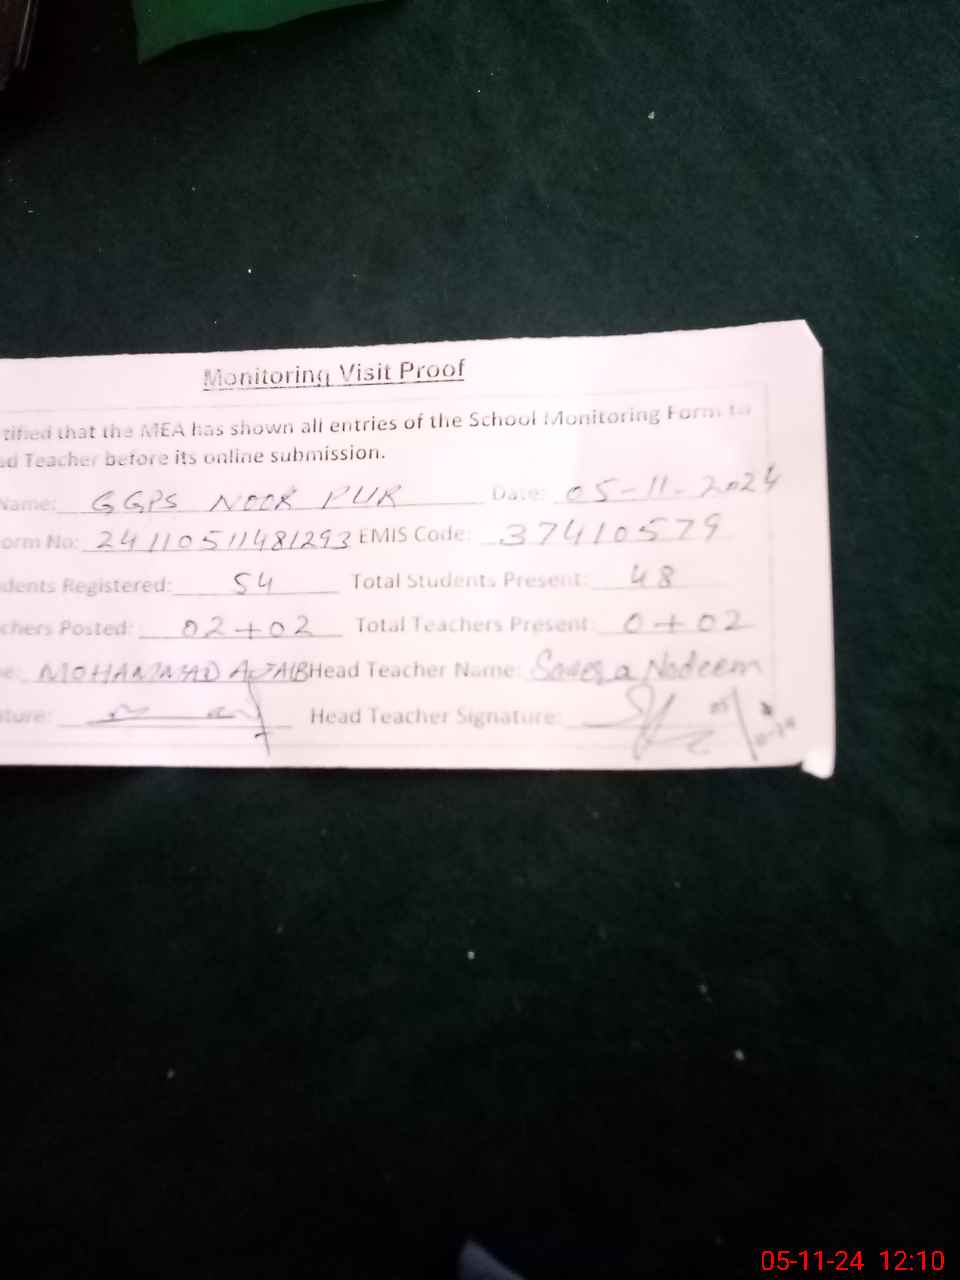 Monitoring Visit Proof
tified that the MEA has shown all entries of the School Monitoring Form to
ad Teacher before its online submission.
Name: GGPS NOOR PUR Date: 05-11-2024
orm No: 24110511481293 EMIS Code: 37410579
dents Registered: 54 Total Students Present: 48
chers Posted: 02+02 Total Teachers Present: 0+02
e: MOHAMMAD Head Teacher Name: Nadeem
ture: Head Teacher Signature:
05-11-24 12:10